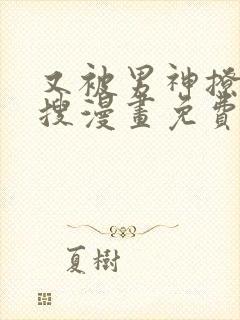 又被男神撩
搜漫畫免費
夏樹